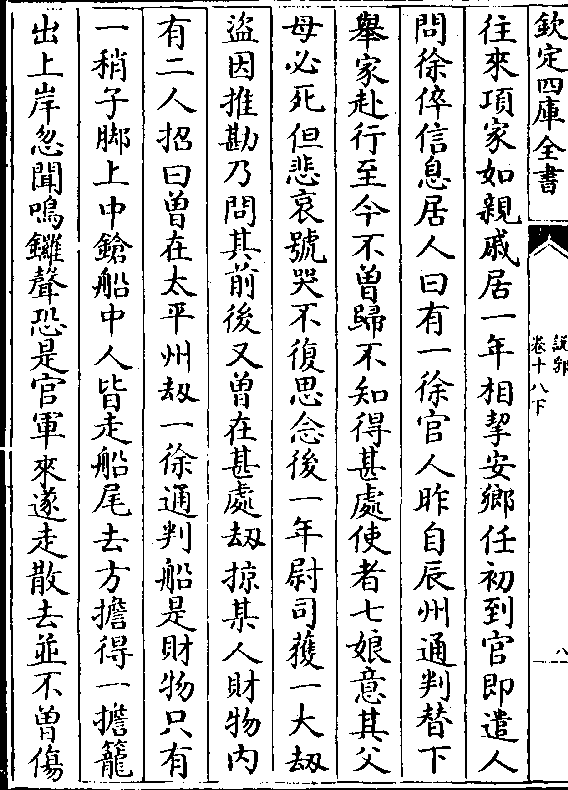 欽定四庫全書
說郛
卷十八下
八
往來項家如親戚居一年相挈安鄉任初到官即遣人
問徐倅信息居人曰有一徐官人昨自辰州通判替下
舉家赴行至今不曾歸不知得甚處使者七娘意其父
母必死但悲哀號哭不復思念後一年尉司獲一大刼
盜因推勘乃問其前後又曾在甚處刼掠某人財物内
有二人招曰曾在太平州刼一徐通判船是財物只有
一稍子脚上中鎗船中人皆走船尾去方擔得一擔籠
出上岸忽聞鳴鑼聲恐是官軍來遂走散去並不曾傷